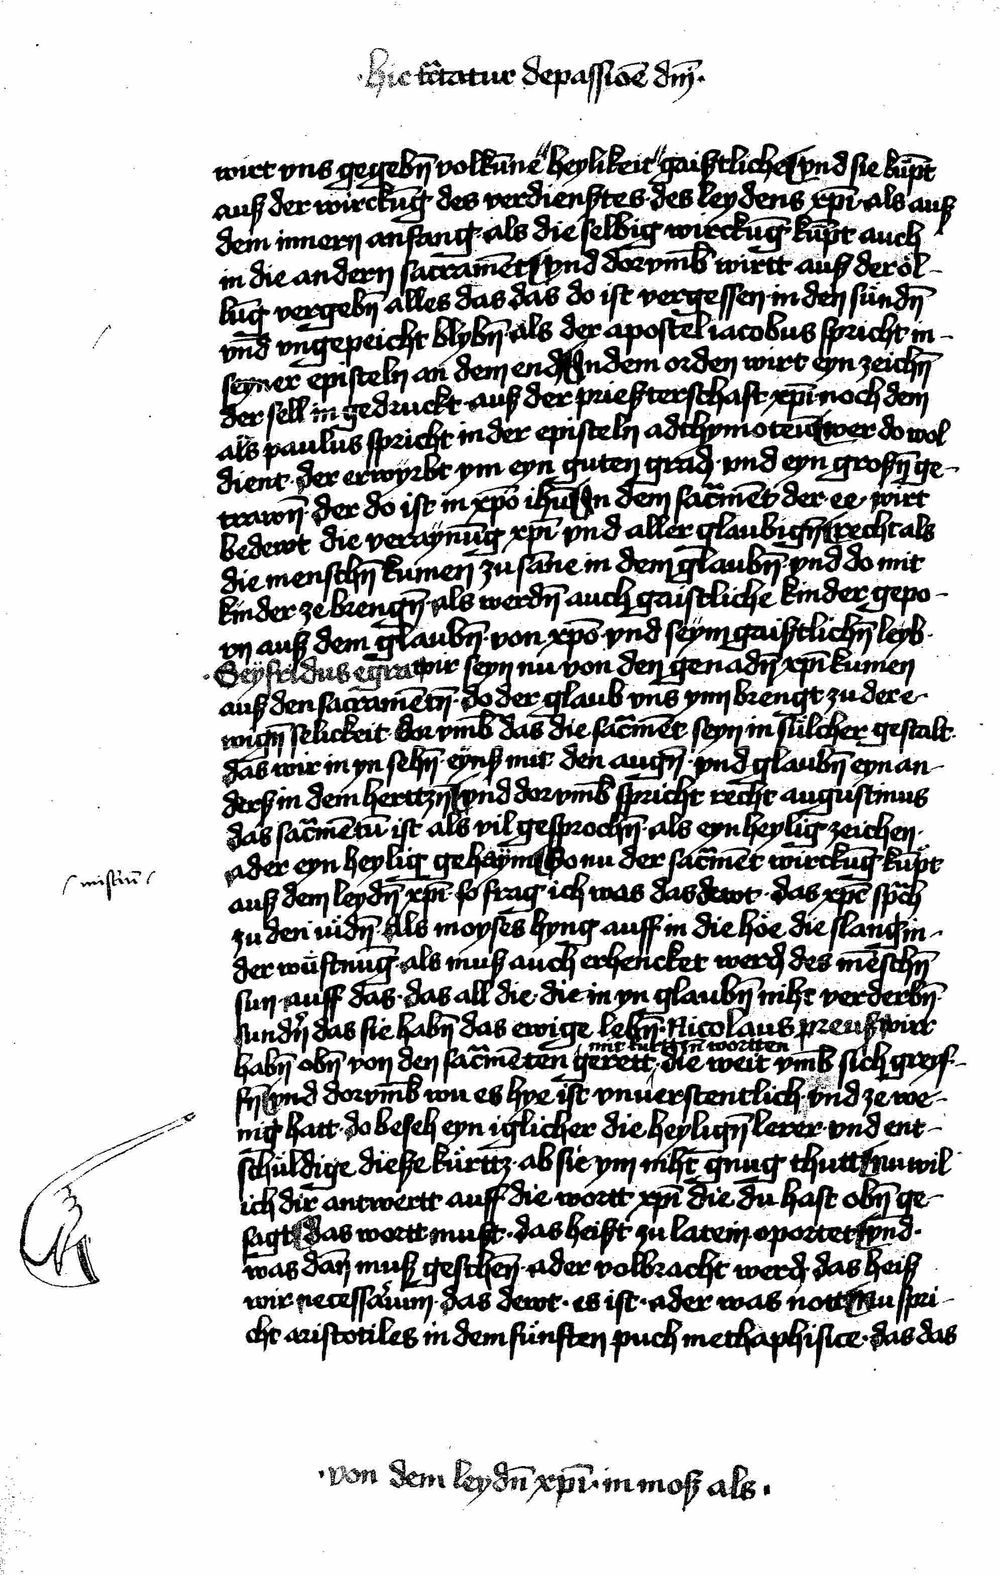 ·hie tractatur de passiōe dm̄·
wirt vns gegebn̄ volkūne heylikeit gaistliche vnd sie kūpt
auß der wirckūg des verdienstes des leydens xp̄i·als auß
dem innern anfang·als die selbig wirckūg kūpt auch
in die andern sacramēt vnd dorvmb̄ wirtt auß der öl-
būg vergebn̄ alles das das do ist vergessen in den sündn̄
vnd vngepeicht blybn̄ als der apostel iacobus spricht in-
seyner episteln an dem end In dem orden wirt eyn zeichn̄
der sell in gedruckt auß der priesterschaft xp̄i noch dem
als paulus spricht in der episteln ad thymoteū wer do wol
dient·der erwyrbt ym eyn guten grad·vnd eyn großn̄ ge-
trawn̄·der do ist in xp̄o ihū In dem sac̄mēt der·ee·wirt
bedewt die veraynūg xp̄i vnd aller glaubign̄ recht als
die menschn̄ kumen zu sāne in dem glaubn̄·vnd do mit
kinder ze brengn̄·als werdn̄ auch gaistliche kinder gepo-
rn auß dem glaubn̄·von xp̄o·vnd seym gaistlichn̄ leyb·
·Seyfridus egra wir seyn nu von den genadn̄ xp̄i kumen
auß den sacramētn̄·do der glaub vns ynn brengt zu der e-
wign̄ selickeit·dorvmb̄ das die sac̄mēt seyn in sülcher gestalt·
das wir in yn sehn̄·eynß mit den augn̄·vnd glaubn̄ eyn an-
derß in dem herttzn̄ vnd dorvmb̄ spricht recht augustinus
das sac̄mētū ist als vil gesprochn̄·als eyn heylig zeichen·
ader eyn heylig gehaym So nu der sac̄mēt wirckūg kūpt
misteriū
auß dem leydn̄ xp̄i·so frag ich was das dewt·das xp̄c sp̄ch
zu den iüdn̄·Als moyses hyng auff in die höe die slang in-
der wüstnūg·als muß auch erhencket werd des mēschn̄
sun·auff das·das all die·die in yn glaubn̄ niht verderbn̄·
sundn̄ das sie habn̄ das ewige lebn̄·Nicolaus preuß wir
mit kurttzn̄ wortten
habn̄ obn̄ von den sac̄mēten gerett·die weit vmb̄ sich greyf-
fn̄ vnd dorvmb̄ wu es hye ist vnuerstentlich·vnd ze we-
nig hatt·do beseh eyn iglicher die heylign̄ lerer·vnd ent-
schüldige dieße kürttz·ab sie ym niht gnug thutt nu wil
ich dir antwertt auff die wortt xp̄i die du hast obn̄ ge-
sagt Das wortt must·das heist zu latein oportet vnd·
was dan̄ muß geschen̄·ader volbracht werd·das heiß
wir necessarium·das dewt·es ist·ader was nott Nu spri-
cht aristotiles in dem fünften puch methaphisice·das das
·von dem leydn̄ xp̄i·in moß als·